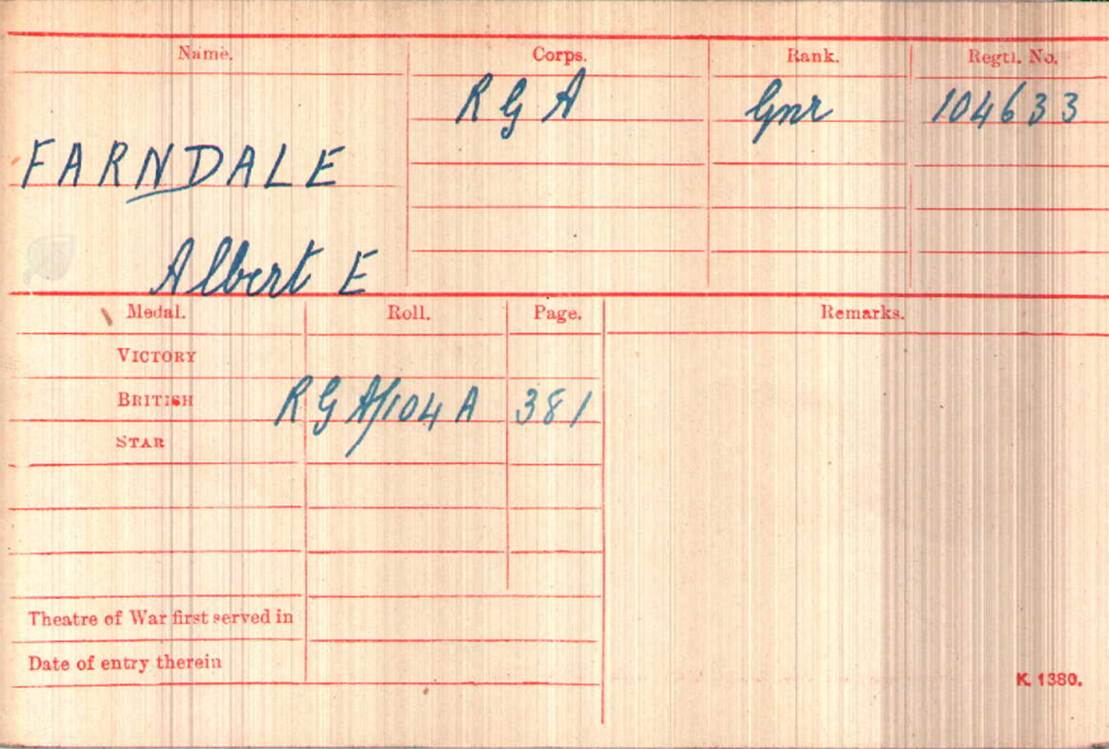 Name. Corps. Rank. Regtl. No.
R G A Gnr 104633
FARNDALE
Albert E
Medal. Roll. Page. Remarks.
VICTORY
BRITISH R G A/104 A 381
STAR
Theatre of War first served in
Date of entry therein
K. 1380.